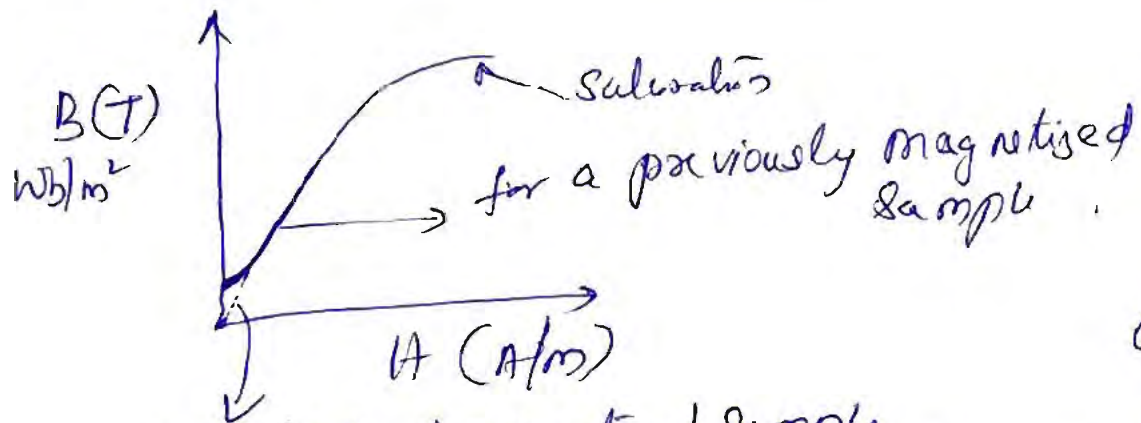 B(T)
Wb/m²
Saturation
for a previously magnetized
Sample.
H (A/m)
Sample